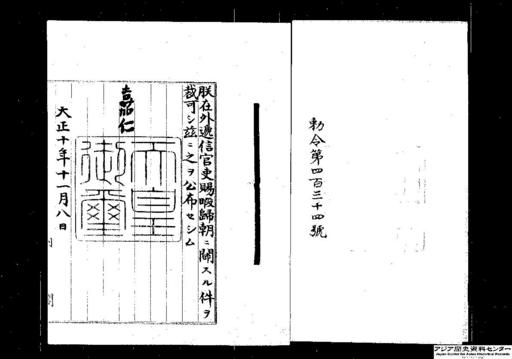 勅令第四百三十四號
朕在外遞信官吏賜暇歸朝ニ關スル件ヲ
裁可シ茲ニ之ヲ公布セシム
嘉仁
天皇
御璽
大正十年十一月八日
アジア歴史資料センター
Japan Center for Asian Historical Records